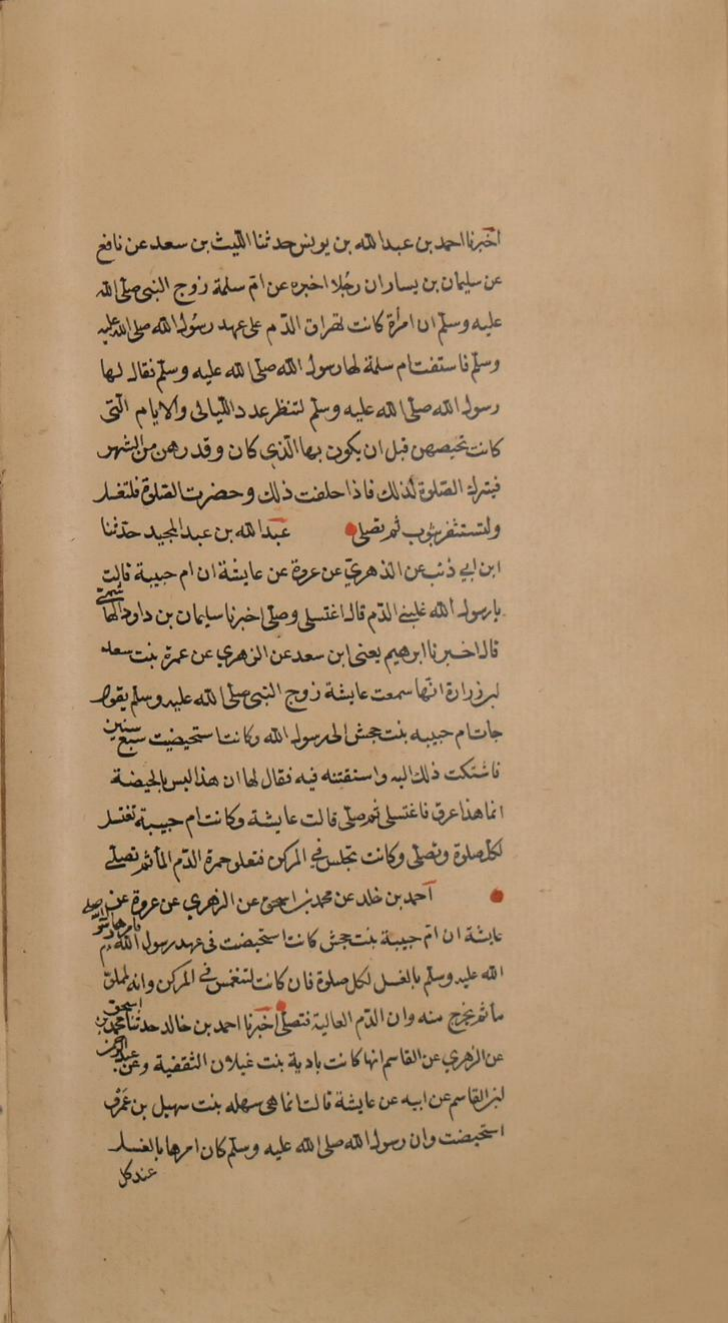 اخبرنا احمد بن عبد الله بن يونس حدثنا الليث بن سعد عن نافع
عن سليمان بن يسار ان رجُلا اخبره عن امّ سلمة زوج النبى صلى الله
عليه وسلّم ان امرأة كانت تهراق الدّم على عهد رسُول الله صلى الله عليه
وسلّم فاستفتت ام سلمة لها رسول الله صلى الله عليه وسلّم فقال لها
رسول الله صلى الله عليه وسلّم لتنظر عدد الليالى والايام الّتى
كانت تحيضهن قبل ان يكون بها الّذي كان وقدرهن من الشهر
فيترك الصّلوة لذلك فاذا خلفت ذلك وحضرت الصّلوة فلتغسل
ولتستثفر بثوب ثم تصلى عبد الله بن عبد المجيد حدّثنا
ابن ابي ذئب عن الذهري عن عروة عن عايشة ان ام حبيبة قالت
يا رسول الله غلبنى الدّم قال اغتسلى وصلى اخبرنا سليمان بن داود الهاشمىّ
قال اخبرنا ابرهيم يعنى ابن سعد عن الزهري عن عمرة بنت سعد
بن زرارة انّها سمعت عايشة زوج النبى صلى الله عليه وسلم يقول
جات ام حبيبه بنت جحش الى رسول الله وكانت استحيضيت سبع سنين
فاشتكت ذلك اليه واستفتته فيه فقال لها ان هذا ليس بالحيضة
انما هذا عرق فاغتسلى ثم صلى قالت عايشة وكانت ام حبيبة تغتسل
لكل صلوة وتصلى وكانت تجلس في المركن فتعلو حمرة الدّم الماء ثم تصلى
احمد بن خلد عن محمد بن اسحق عن الزهري عن عروة عن
عايشة ان امّ حبيبة بنت جحش كانت استحيضت فى عهد رسول الله صلى
الله عليه وسلّم بالغسل لكل صلوة فان كانت لتنغمس في المركن وانه لملئ
ماء ثم يخرج منه وان الدّم العالية فتصلى اخبرنا احمد بن خالد حدثنا محمد بن اسحق
عن الزهري عن القاسم انها كانت بادية بنت غيلان الثقفية وعن عبد الرحمن
بن القاسم عن ابيه عن عايشة قالت انما هى سهله بنت سهيل بن عَمرو
استحيضت وان رسول الله صلى الله عليه وسلّم كان امرها بالغسل
عند كل